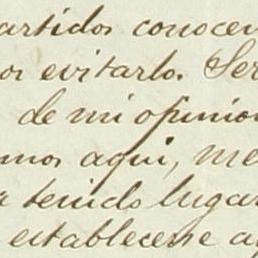 artidos conocen
os evitarlo. Ser
de mi opinion
mos aqui, me
a tenido lugar
establecerse a